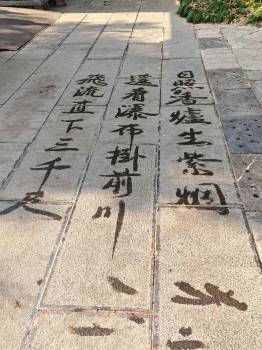 日照香爐生紫烟
遙看瀑布掛前川
飛流直下三千尺